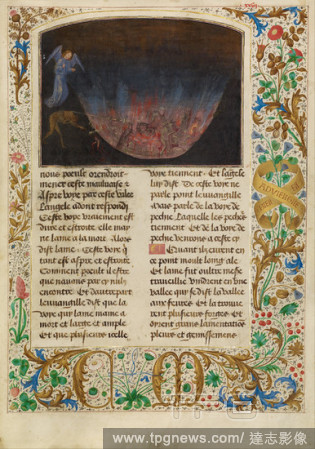 nous poeult orendroit
mener ceste mauvaise
Aspre voye par ceste vallee
Langele adont respondi
Ceste voye vrayement est
dure et estroite elle may
ne lame a la mort Alors
dist lame Ceste voye
tant est aspre et estroite
Comment poeult il estre
que
contre Et dautre part
leuuangille dist que la
voye qui lame maine a
mort et large et ample
Et que plusieurs icelle
voye tiennent Et lagele
luy dist De ceste voye ne
parle point leuuangille
Mais parle de la voye de
peche Laquelle les peche
tiennent et de la voye de
peche venons a ceste cy
Quant ilz eurent en
ce point moult longe ale
Et lame fut oultre mesure
travueillie vindrent en une
vallee qui se dist la vallee
aux feures Et la trouue
rent plusieurs forges Et
oyrent grans lamentations
pleurs et gemissemens
www.tpgnews.com/ 達志影像